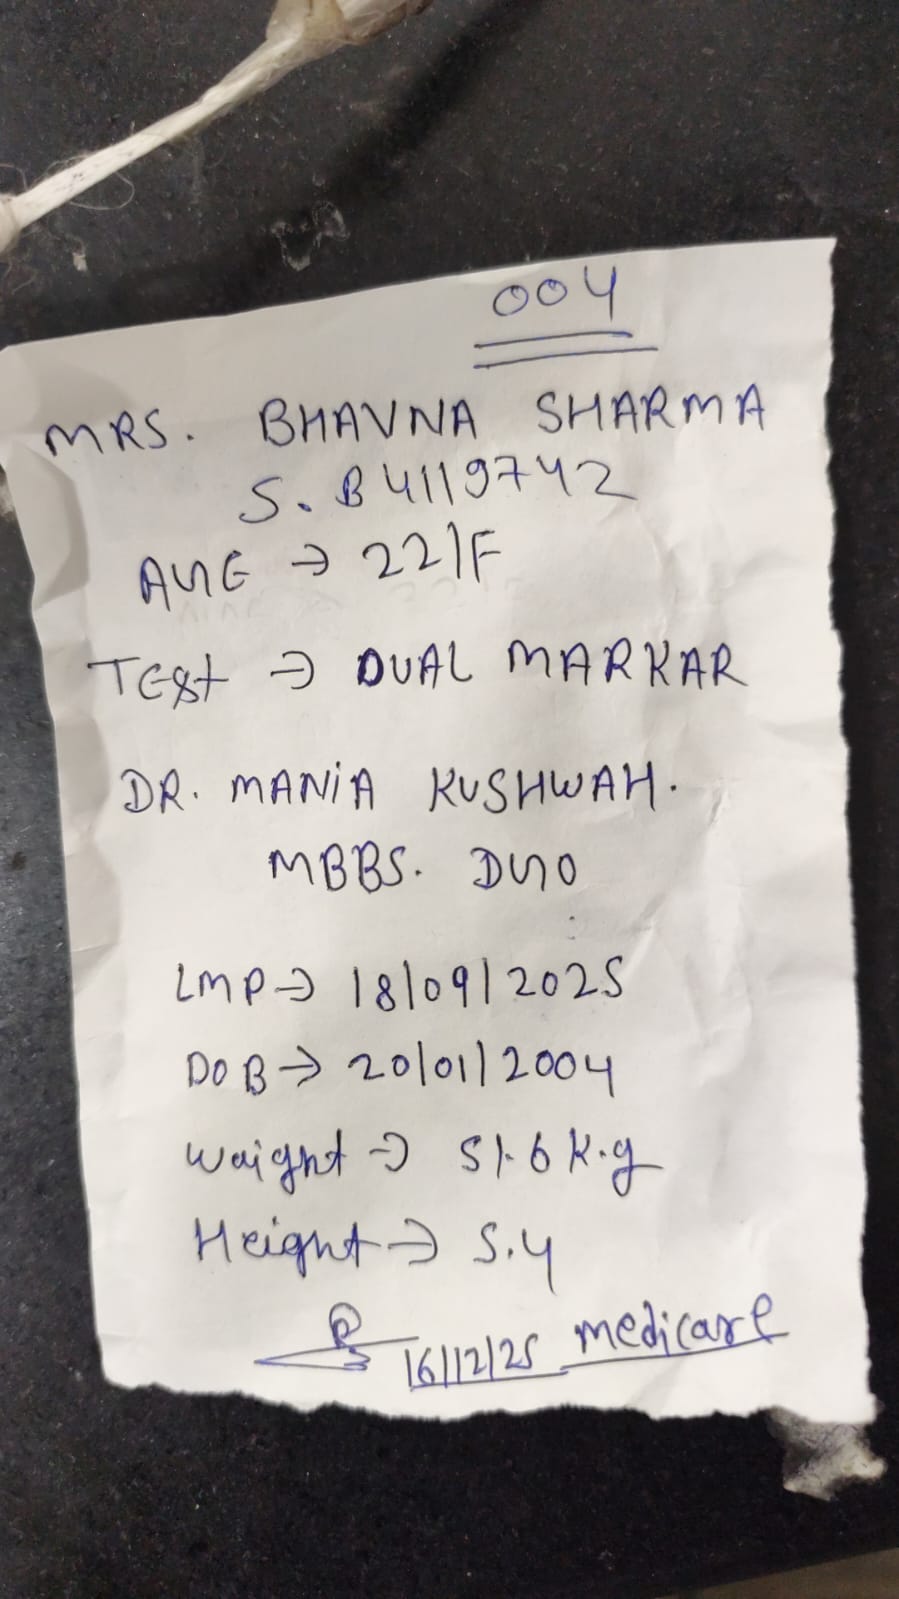 004
MRS. BHAVNA SHARMA
S.B4119742
AGE → 22/F
Test → DUAL MARKAR
DR. MANiA KUSHWAH.
MBBS. DGO
LMP → 18/09/2025
DOB → 20/01/2004
Waight → 51.6 K.g
Height → 5.4
16/12/25 medicare